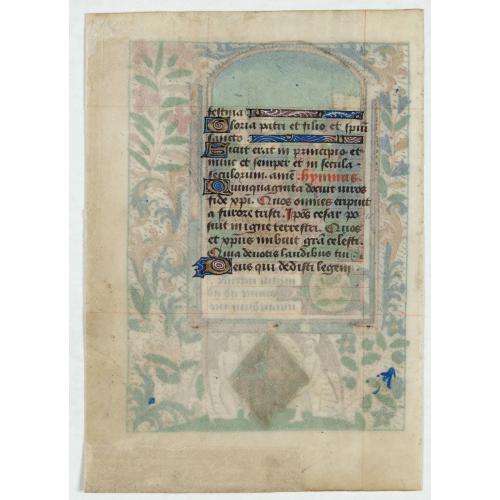 festina
Gloria patri et filio et spiu
sancto
Sicut erat in principio et
nunc et semper et in secula
seculorum. amē. hymnus.
Quinquaginta docuit viros
fide xp̄i. Quos omnes eripuit
a furore tristi. Ip̄os cesar po
suit in igne terrestri. Quos
et xp̄ius imbuit grā celesti.
Quia devotis laudibus tu
Deus qui dedisti legem